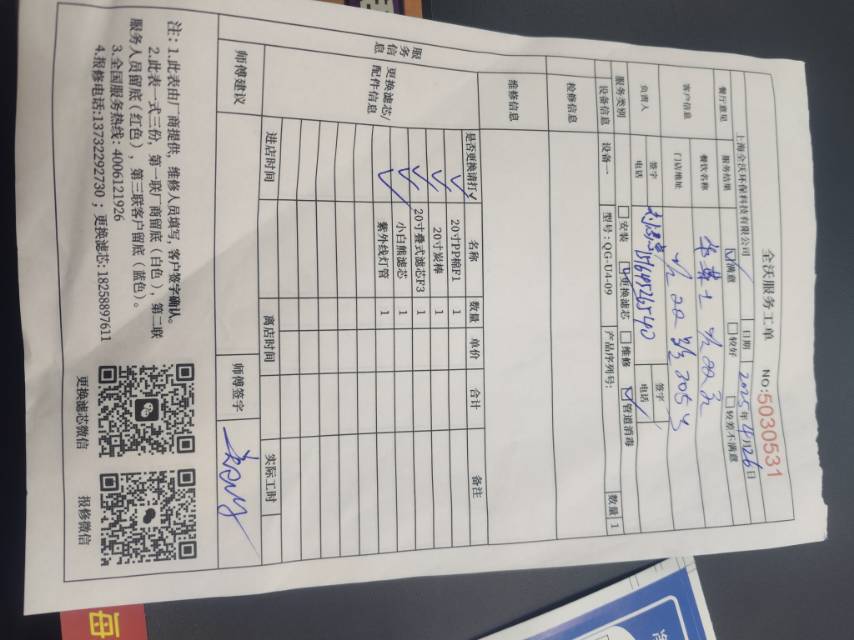 全沃服务工单
No:5030531
上海全沃环保科技有限公司
日期 2025年4月26日
餐厅意见 服务结果 满意 较好 较差不满意
客户信息 餐饮名称
门店地址
负责人 签字 电话 签字 电话
服务类别 安装 更换滤芯 维修 管道消毒
设备信息 设备一 型号:QG-U4-09 产品序列号: 数量 1
检修信息
维修信息
服务信息
更换滤芯/配件信息
是否更换请打√ 名称 数量 单价 合计 备注
20寸PP棉F1 1
20寸炭棒 1
20寸叠式滤芯F3 1
小白熊滤芯 1
紫外线灯管 1
进店时间 离店时间 实际工时
师傅建议 师傅签字
注:1.此表由厂商提供,维修人员填写,客户签字确认。
2.此表一式三份,第一联厂商留底(白色),第二联
服务人员留底(红色),第三联客户留底(蓝色)。
3.全国服务热线:4006121926
4.报修电话:13732292730;更换滤芯:18258897611
更换滤芯微信 报修微信